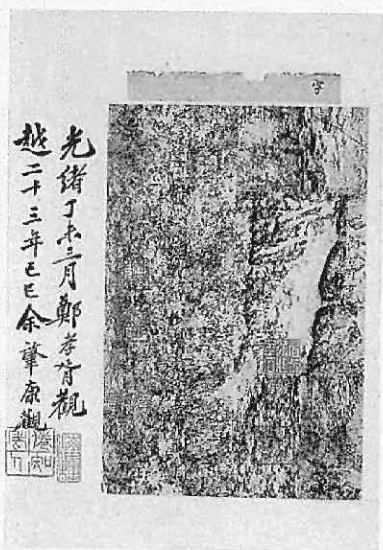 字
光緒丁未三月鄭孝胥觀
越二十三年己巳余肇康觀
倦知
老人